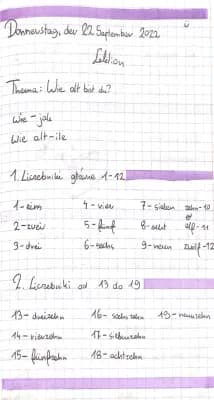 Donnerstag, der 22 September 2022
Lektion
Thema: Wie alt bist du?
Wie - jak
Wie alt - ile
1. Liczebniki główne 1-12
1 - eins 4 - vier 7 - sieben zehn - 10
2 - zwei 5 - fünf 8 - acht elf - 11
3 - drei 6 - sechs 9 - neun zwölf - 12
2. Liczebniki od 13 do 19
13 - dreizehn 16 - sechszehn 19 - neunzehn
14 - vierzehn 17 - siebenzehn
15 - fünfzehn 18 - achtzehn